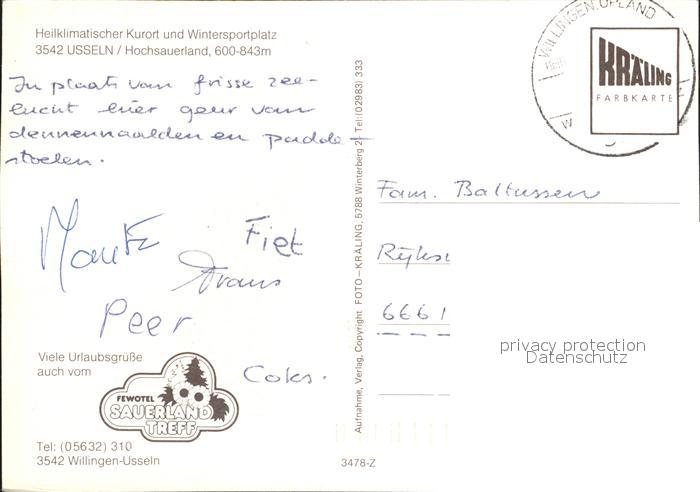 Heilklimatischer Kurort und Wintersportplatz
3542 USSELN / Hochsauerland, 600-843m
In plaats van frisse zee-
lucht hier geur van
dennennaalden en padde-
stoelen.
Fiet
Frans
Peer
Coks.
Viele Urlaubsgrüße
auch vom
FEWOTEL
SAUERLAND
TREFF
Tel: (05632) 310
3542 Willingen-Usseln
Aufnahme, Verlag, Copyright FOTO-KRÄLING, 5788 Winterberg 2, Tel: (02983) 333
3478-Z
WILLINGEN, UPLAND
W
KRÄLING
FARBKARTE
Fam. Baltussen
Rijks
6661
privacy protection
Datenschutz